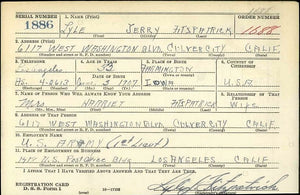 SERIAL NUMBER
1. NAME (Print)
ORDER NUMBER
1886
Lyle Jerry Fitzpatrick
1688
2. ADDRESS (Print)
6117 West Washington Blvd. Culver City Calif.
3. TELEPHONE
4. AGE IN YEARS
5. PLACE OF BIRTH
6. COUNTRY OF CITIZENSHIP
33
Farmington
1907
Iowa
U.S.A.
7. NAME OF PERSON WHO WILL ALWAYS KNOW YOUR ADDRESS
8. RELATIONSHIP OF THAT PERSON
Mrs Harriet Fitzpatrick Wife
9. ADDRESS OF THAT PERSON
6117 West Washington Blvd. Culver City Calif.
10. EMPLOYER'S NAME
U.S. Army (1st Lieut)
11. PLACE OF EMPLOYMENT OR BUSINESS
U.S. Postoffice Bldg Los Angeles Calif.
I AFFIRM THAT I HAVE VERIFIED ABOVE ANSWERS AND THAT THEY ARE TRUE.
REGISTRATION CARD
D. S. S. Form 1